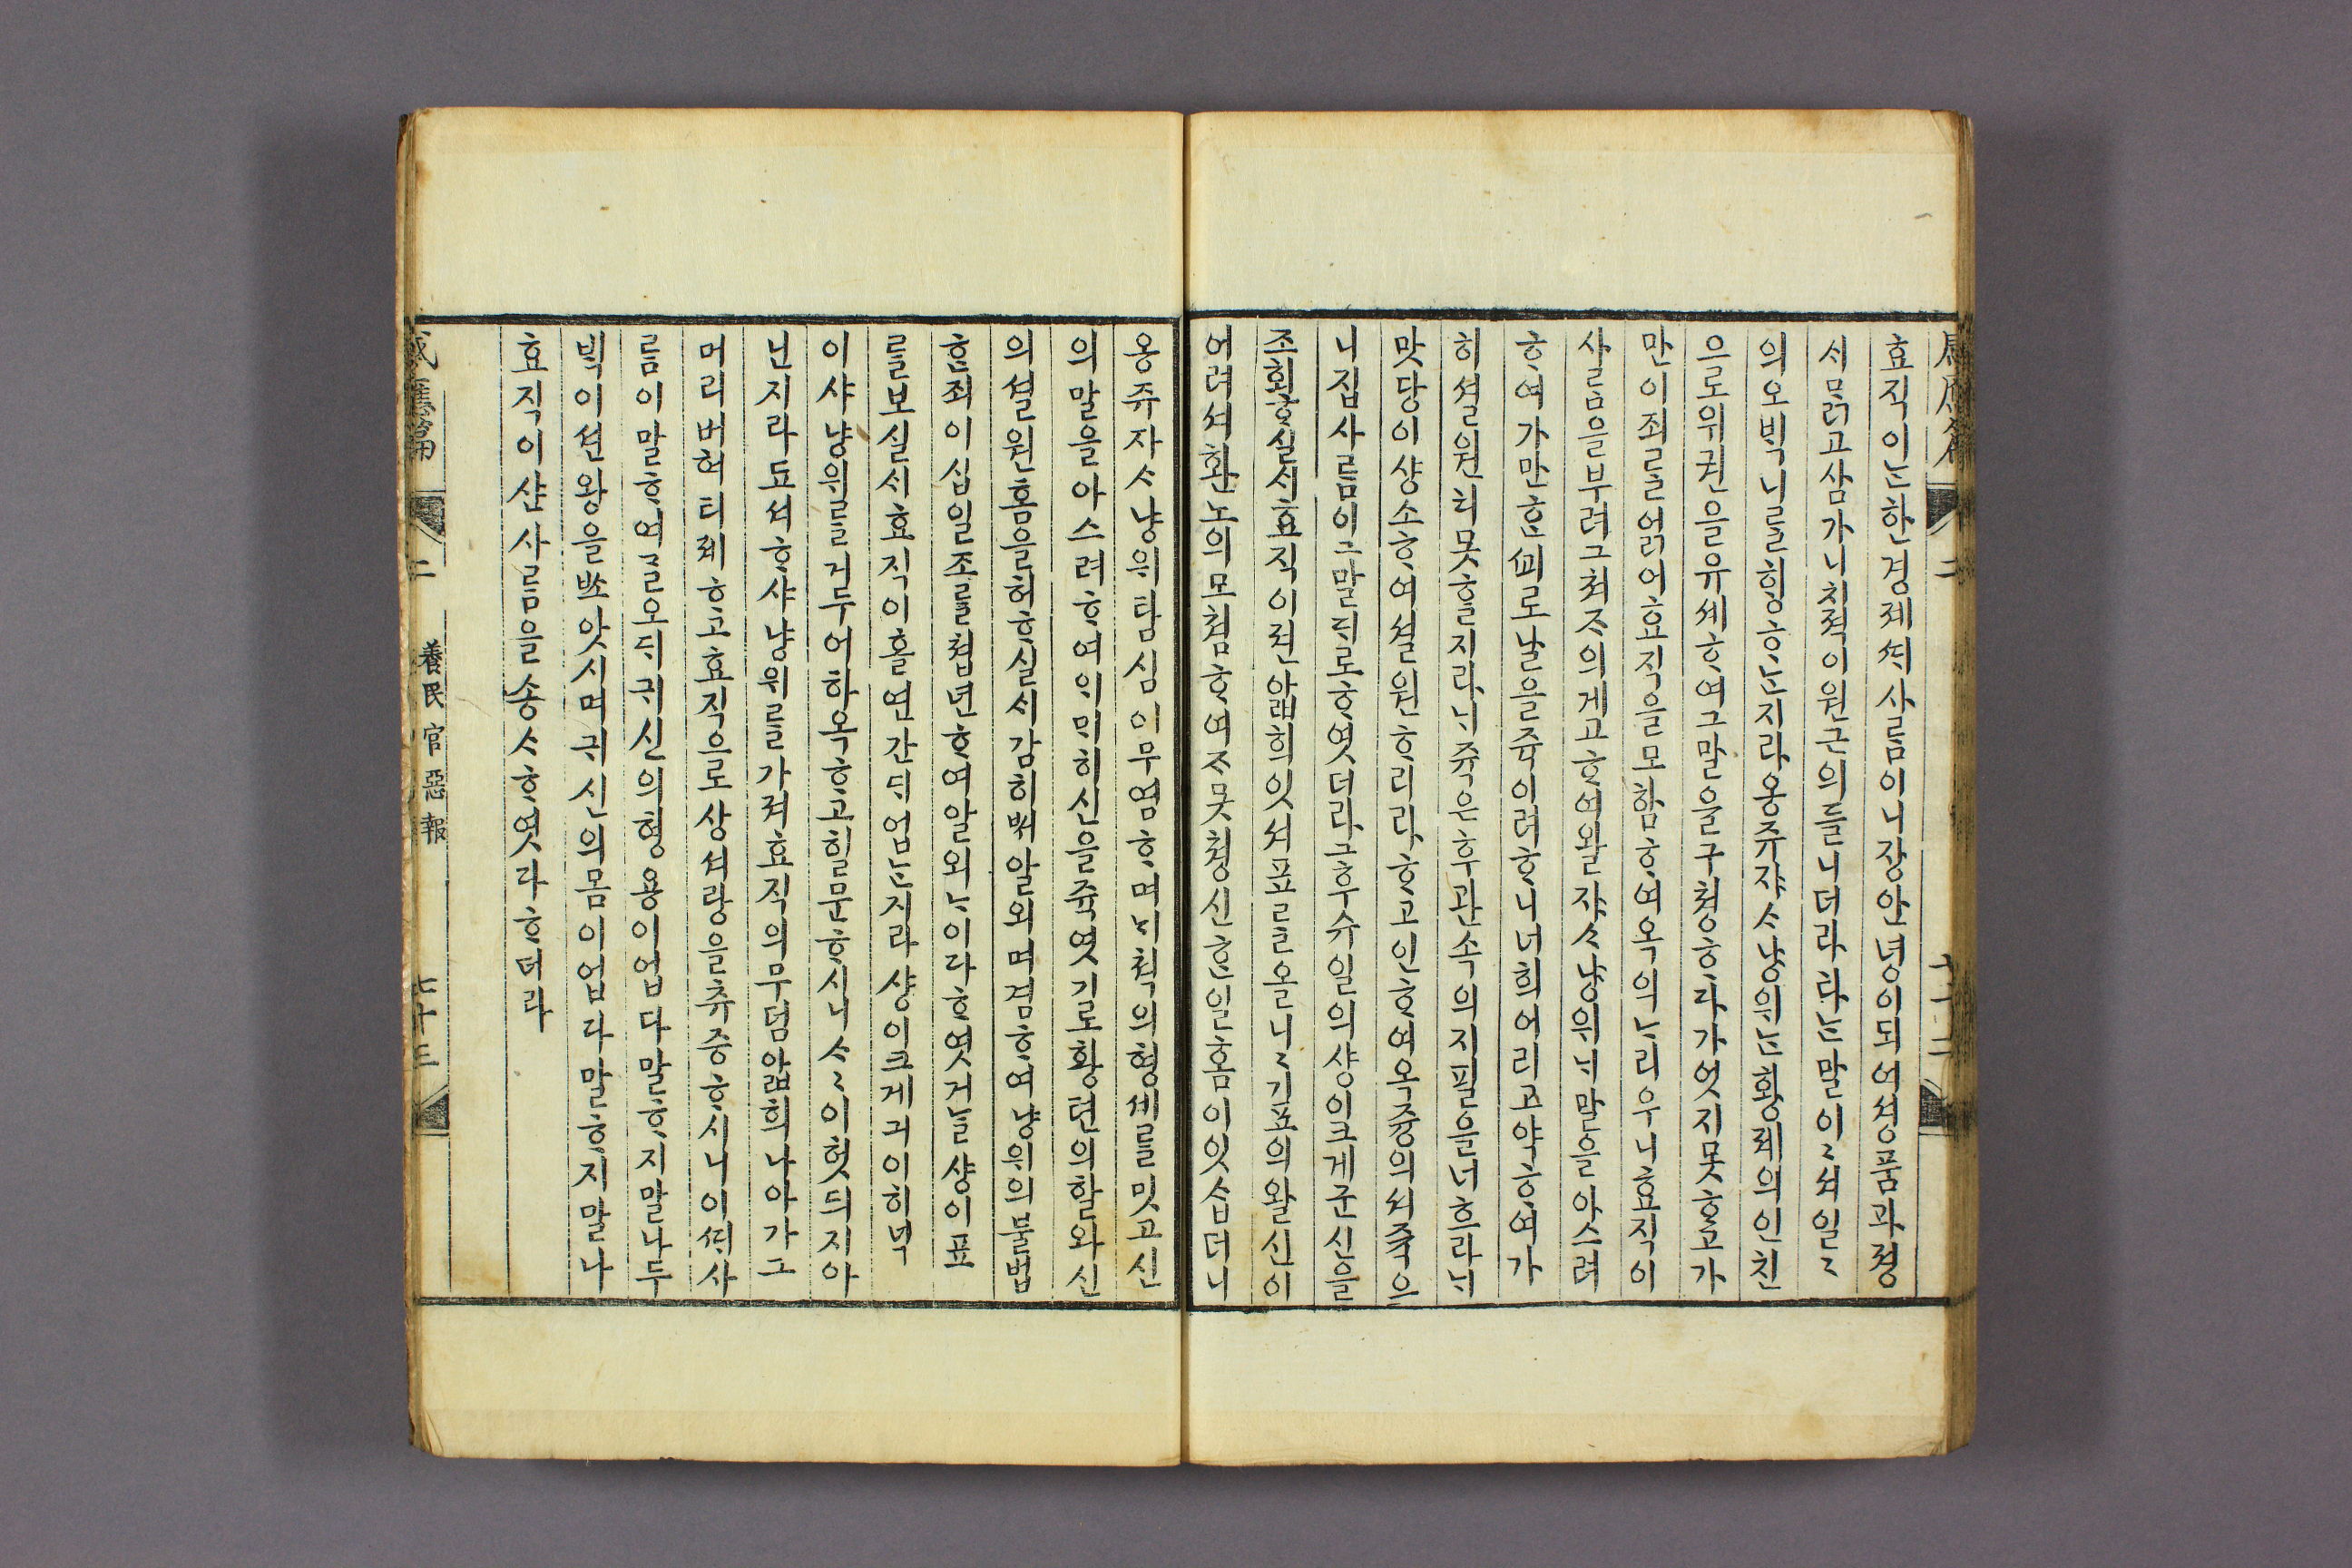 효직이ᄂᆞᆫ한경졔ᄯᅢ사ᄅᆞᆷ이니쟝안녕이되여셩품과졍
ᄉᆡ ᄆᆞᆰ고삼가니치젹이원근의들니더라라ᄂᆞᆫ말이〻셔일〻
의오ᄇᆡᆨ니ᄅᆞᆯᄒᆡᆼᄒᆞᄂᆞᆫ지라옹쥬쟈ᄉᆞ냥위ᄂᆞᆫ황졔의인친
으로위권을유셰ᄒᆞ여그말을구쳥ᄒᆞ다가엇지못ᄒᆞ고가
만이죄ᄅᆞᆯ얽어효직을모함ᄒᆞ여옥의ᄂᆞ리우니효직이
사ᄅᆞᆷ을부려그쳐ᄌᆞ의게고ᄒᆞ여왈쟈ᄉᆞ냥위ᄂᆡ말을아스려
ᄒᆞ여가만ᄒᆞᆫ로날을쥭이려ᄒᆞ니너희어리고약ᄒᆞ여가
히셜원치못ᄒᆞᆯ지라ᄂᆡ쥭은후관속의지필을너흐라ᄂᆡ
맛당이샹소ᄒᆞ여셜원ᄒᆞ리라ᄒᆞ고인ᄒᆞ여옥즁의셔쥭으
니집사ᄅᆞᆷ이그말ᄃᆡ로ᄒᆞ엿더라그후슈일의샹이크게군신을
조회ᄒᆞ실ᄉᆡ효직이젼앏희잇셔표ᄅᆞᆯ올니〻기표의왈신이
어려셔환노의모쳠ᄒᆞ여ᄌᆞ못쳥신ᄒᆞᆫ일홈이잇ᄉᆞᆸ더니
옹쥬쟈ᄉᆞ냥위탐심이무염ᄒᆞ며ᄂᆡ쳑의형셰ᄅᆞᆯ밋고신
의말을아스려ᄒᆞ여이ᄆᆡ히신을쥭엿기로황텬의할와신
의셜원홈을허ᄒᆞ실ᄉᆡ감히ᄡᅥ알외며겸ᄒᆞ여냥위의불법
ᄒᆞᆫ죄이십일조ᄅᆞᆯ쳠년ᄒᆞ여알외ᄂᆞ이라ᄒᆞ엿거ᄂᆞᆯ샹이표
ᄅᆞᆯ보실ᄉᆡ효직이홀연간ᄃᆡ업ᄂᆞᆫ지라샹이크게괴이히녁
이샤냥위ᄅᆞᆯ거두어하옥ᄒᆞ고힐문ᄒᆞ시니ᄉᆞ〻이헛되지아
닌지라됴셔ᄒᆞ샤냥위ᄅᆞᆯ가져효직의무덤앏희나아가그
머리버혀티졔ᄒᆞ고효직으로상셔랑을츄증ᄒᆞ시니이ᄯᅢ사
ᄅᆞᆷ이말ᄒᆞ여ᄀᆞᆯ오ᄃᆡ귀신의형용이업다말ᄒᆞ지말나두
ᄇᆡᆨ이션왕을ᄶᅩ앗시며귀신의몸이업다말ᄒᆞ지말나
효직이샵사ᄅᆞᆷ을송ᄉᆞᄒᆞ엿다ᄒᆞ더라
感應篇 二 養民官惡報 七十三